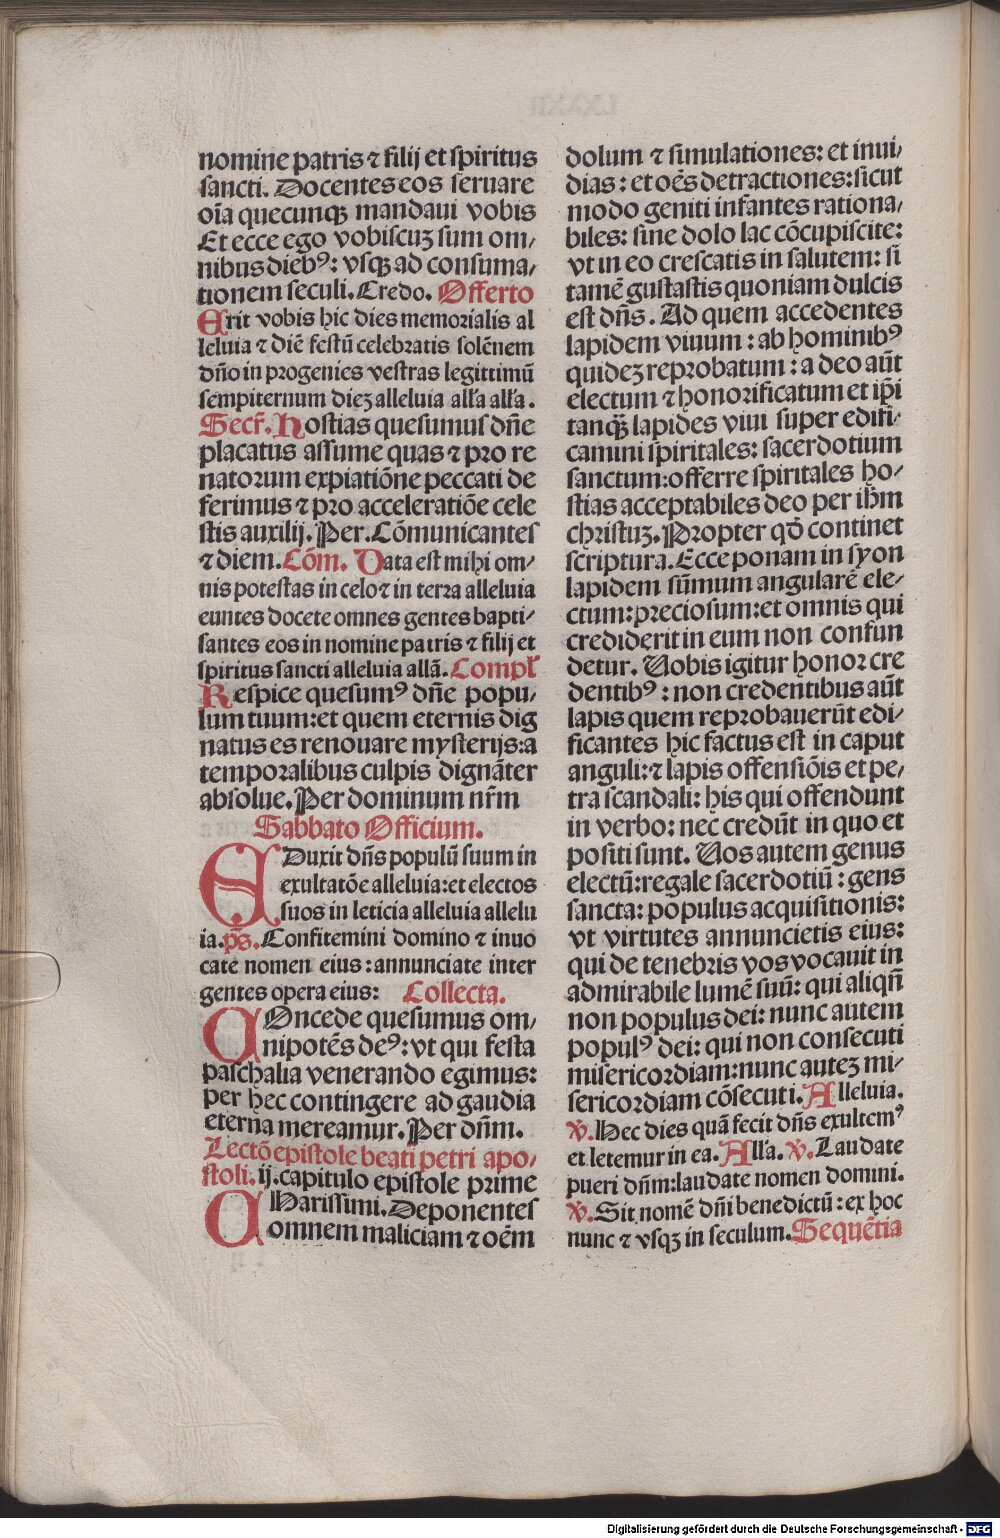 nomine patris ⁊ filij et spiritus
sancti. Docentes eos seruare
oĩa quecunqꝫ mandaui vobis
Et ecce ego vobiscuꝫ sum om/
nibus diebꝰ: vsqꝫ ad consuma/
tionem seculi. Credo. Offerto
Erit vobis hic dies memorialis al
leluia ⁊ diẽ festũ celebratis solẽnem
dño in progenies vestras legittimũ
sempiternum dieꝫ alleluia alľa alľa.
Secř. Hostias quesumus dñe
placatus assume quas ⁊ pro re
natorum expiatiõne peccati de
ferimus ⁊ pro acceleratiõe cele
stis auxilij. Per. Cõmunicantes
⁊ diem. Cõm. Data est mihi om/
nis potestas in celo ⁊ in terra alleluia
euntes docete omnes gentes bapti/
santes eos in nomine patris ⁊ filij et
spiritus sancti alleluia allã. Compľ
Respice quesumꝰ dñe popu/
lum tuum: et quem eternis dig
natus es renouare mysterijs: a
temporalibus culpis dignãter
absolue. Per dominum nr̃m
Sabbato Officium.
EDuxit dñs populũ suum in
exultatõe alleluia: et electos
suos in leticia alleluia allelu
ia. p̃s. Confitemini domino ⁊ inuo
cate nomen eius: annunciate inter
gentes opera eius: Collecta.
COncede quesumus om/
nipotẽs deꝰ: vt qui festa
paschalia venerando egimus:
per hec contingere ad gaudia
eterna mereamur. Per dñm.
Lectõ epistole beati petri apo/
stoli. ij. capitulo epistole prime
CHarissimi. Deponentes
omnem maliciam ⁊ oẽm
dolum ⁊ simulationes: et inui/
dias: et oẽs detractiones: sicut
modo geniti infantes rationa/
biles: sine dolo lac cõcupiscite:
vt in eo crescatis in salutem: si
tamẽ gustastis quoniam dulcis
est dñs. Ad quem accedentes
lapidem viuum: ab hominibꝰ
quideꝫ reprobatum: a deo aũt
electum ⁊ honorificatum et ip̃i
tanqꝫ̃ lapides viui super edifi/
camini spiritales: sacerdotium
sanctum: offerre spiritales ho/
stias acceptabiles deo per ih̃m
christuꝫ. Propter qd̃ continet
scriptura. Ecce ponam in syon
lapidem sũmum angularẽ ele/
ctum: preciosum: et omnis qui
crediderit in eum non confun
detur. Uobis igitur honor cre
dentibꝰ: non credentibus aũt
lapis quem reprobauerũt edi/
ficantes hic factus est in caput
anguli: ⁊ lapis offensiõis et pe/
tra scandali: his qui offendunt
in verbo: nec credũt in quo et
positi sunt. Uos autem genus
electũ: regale sacerdotiũ: gens
sancta: populus acquisitionis:
vt virtutes annuncietis eius:
qui de tenebris vos vocauit in
admirabile lumẽ suũ: qui aliqñ
non populus dei: nunc autem
populꝰ dei: qui non consecuti
misericordiam: nunc auteꝫ mi/
sericordiam cõsecuti. Alleluia.
℣. Hec dies quã fecit dñs exultemꝰ
et letemur in ea. Alľa. ℣. Laudate
pueri dñm: laudate nomen domini.
℣. Sit nomẽ dñi benedictũ: ex hoc
nunc ⁊ vsqꝫ in seculum. Sequẽtia
Digitalisierung gefördert durch die Deutsche Forschungsgemeinschaft - DFG